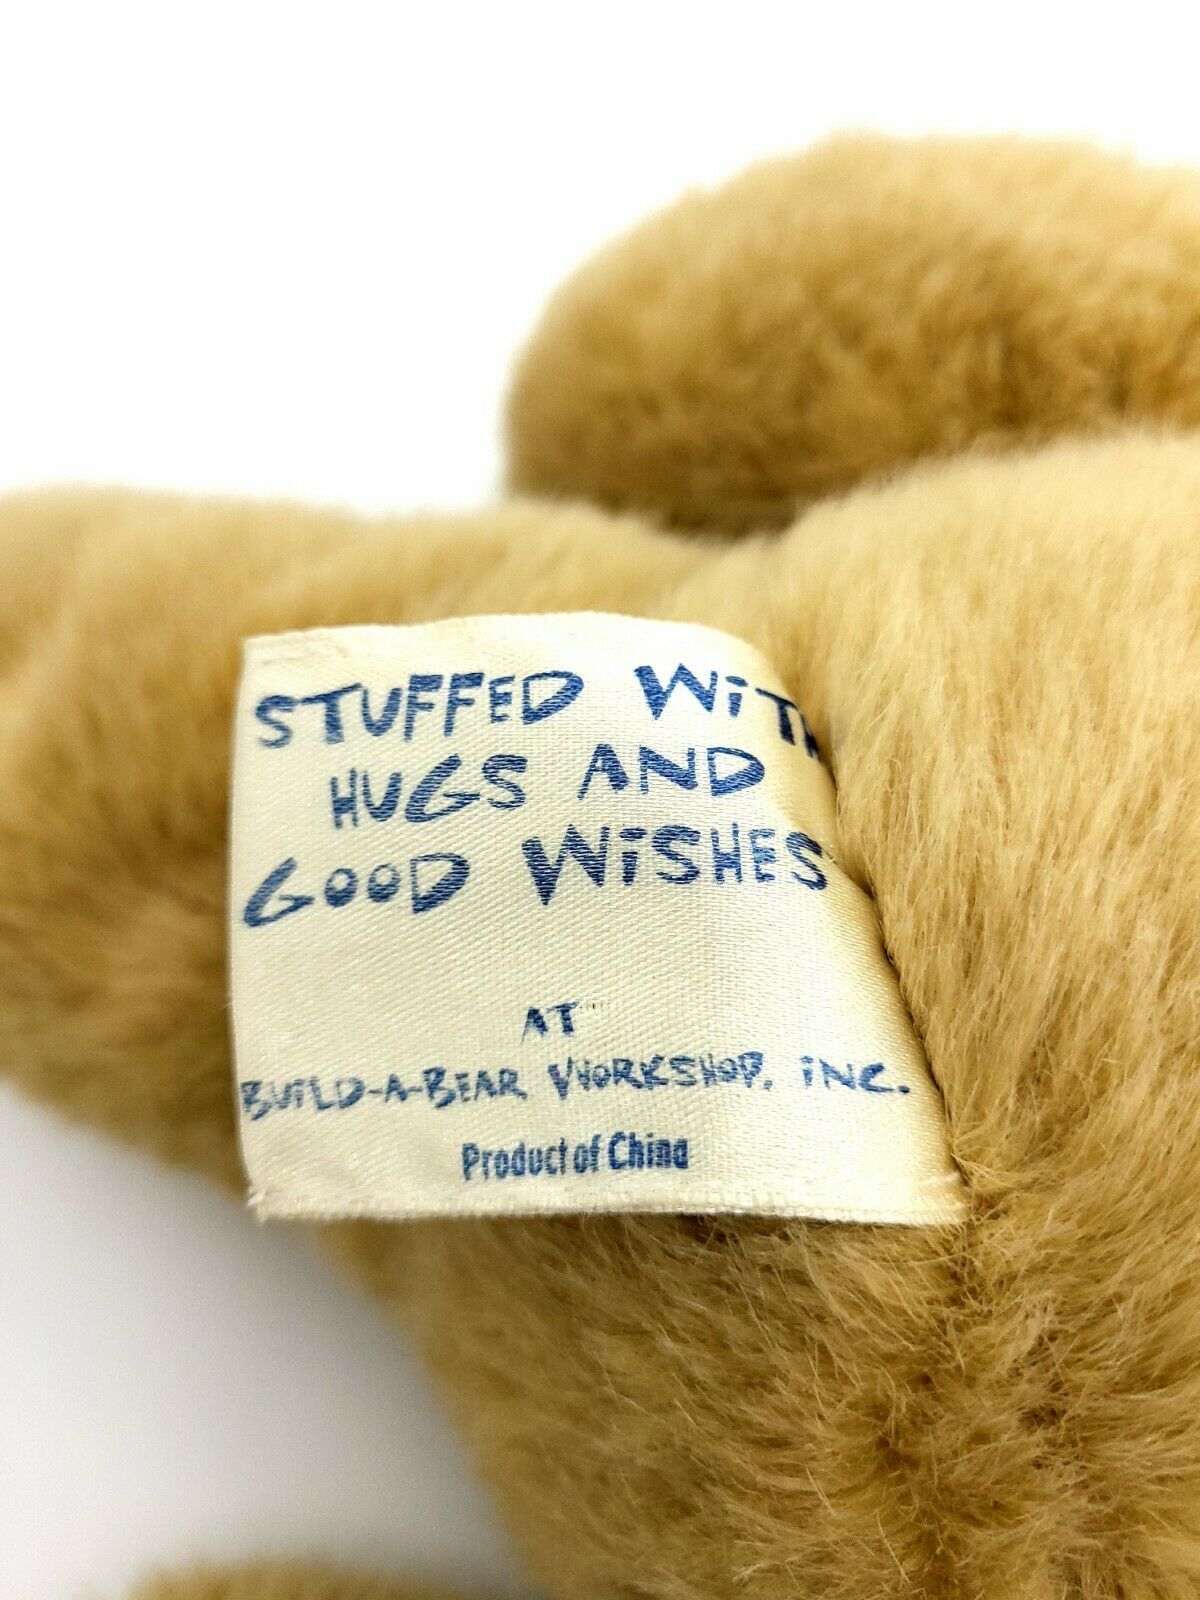 STUFFED WITH
HUGS AND
GOOD WISHES
AT
BUILD-A-BEAR WORKSHOP, INC.
Product of China